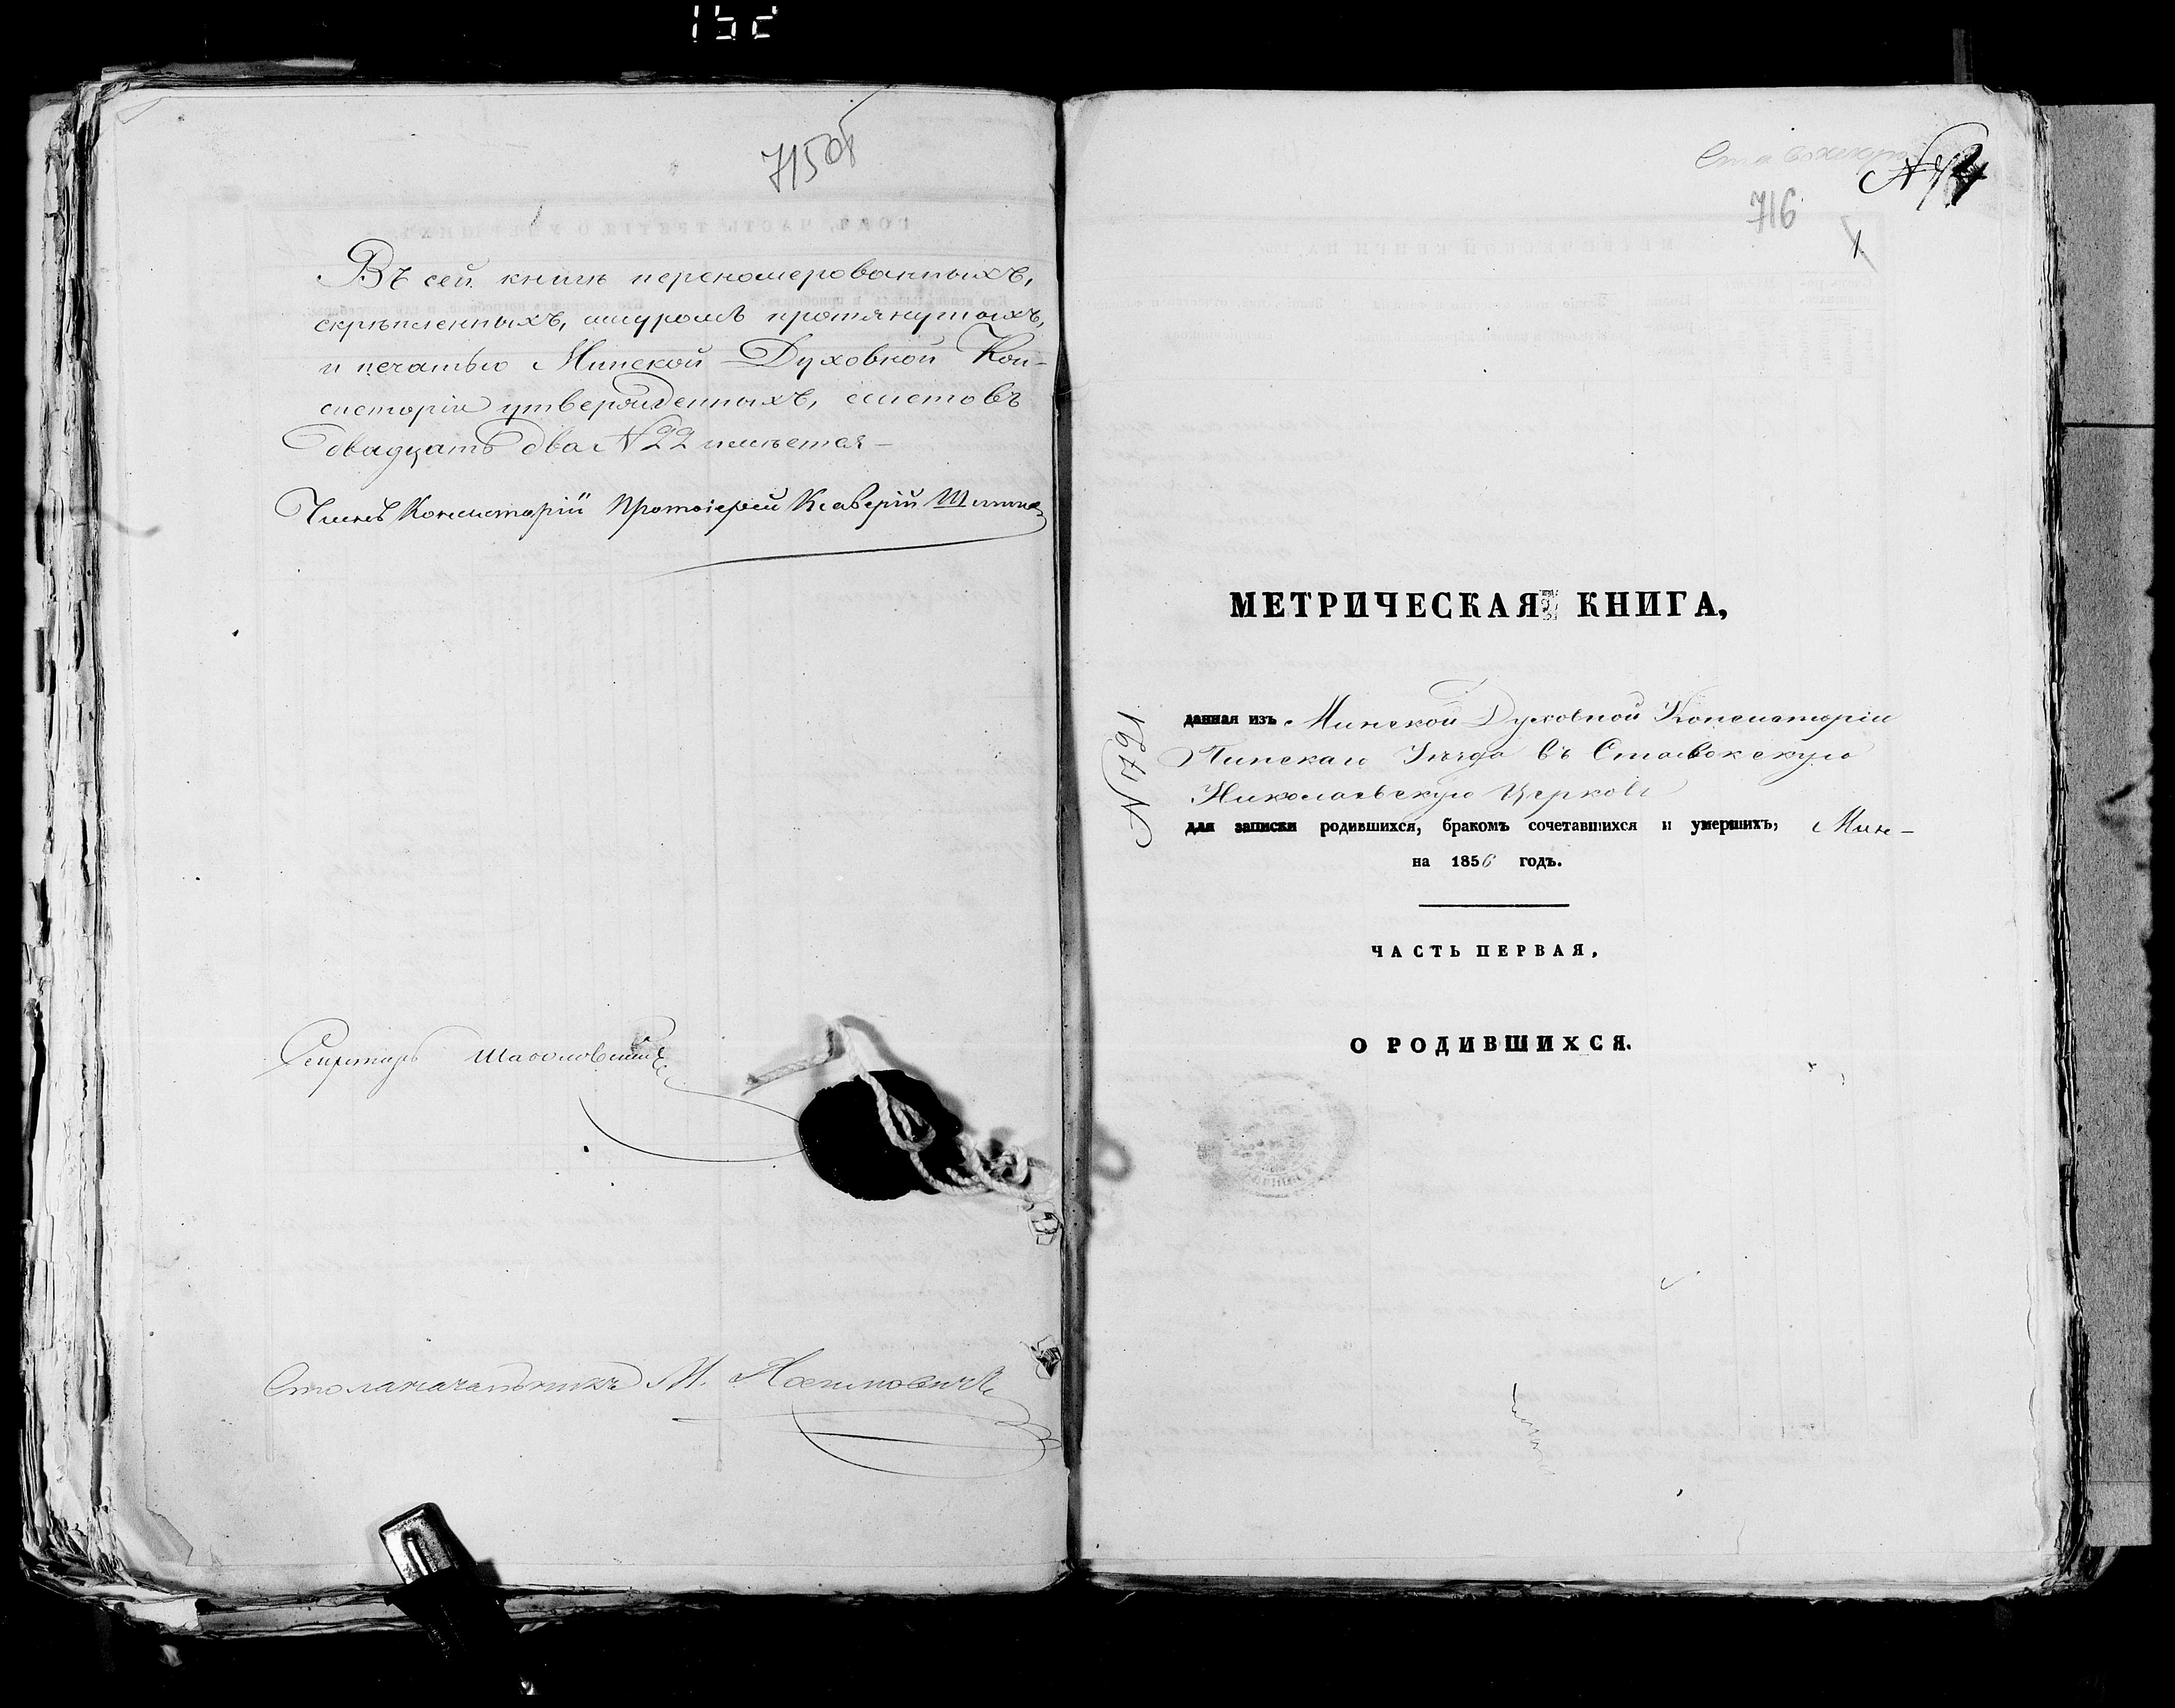 715 об
Въ сей книгѣ переномерованныхъ,
скрѣпленныхъ, шнуромъ протянутыхъ,
и печатью Минской Духовной Кон-
систоріи утвержденныхъ, листовъ
двадцать два N 22 имѣется –
Членъ Консисторіи Протоіерей Ксаверій
Секретарь
Столоначальникъ М.
716
1
МЕТРИЧЕСКАЯ КНИГА,
данная изъ Минской Духовной Консисторіи
Пинскаго Уѣзда въ Ставокскую
Николаевскую Церковь
для записки родившихся, бракомъ сочетавшихся и умершихъ, Мин-
на 1856 годъ.
N 761
ЧАСТЬ ПЕРВАЯ,
О РОДИВШИХСЯ.